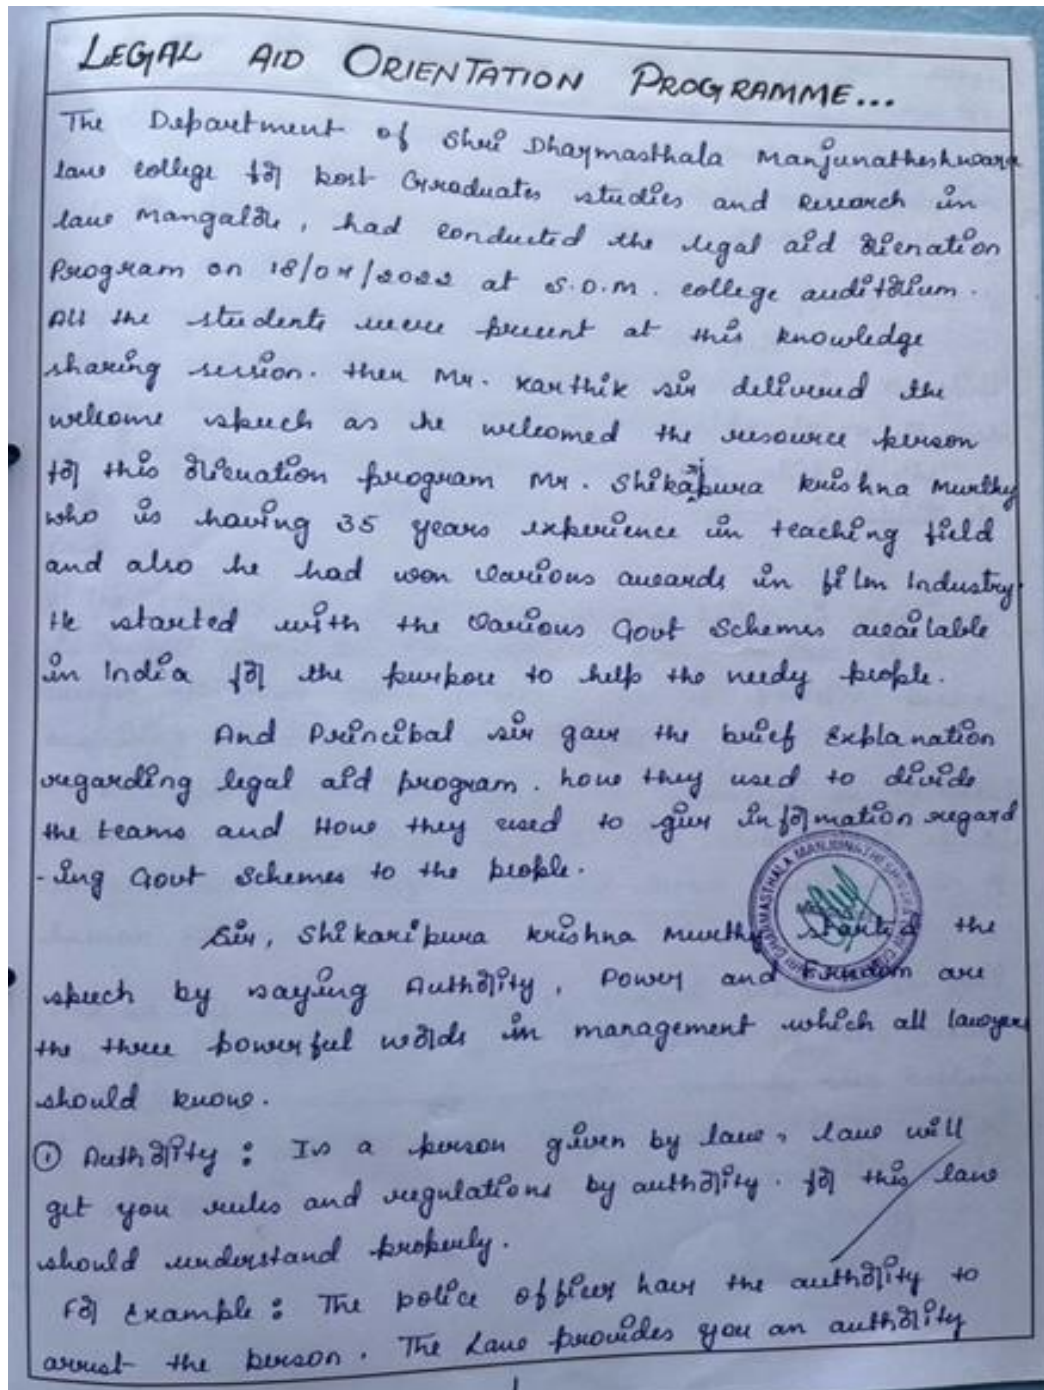 LEGAL AID ORIENTATION PROGRAMME...
The Department of Shri Dharmasthala Manjunatheshwara
law college for post Graduates studies and Research in
law Mangalore, had conducted the legal aid orienation
Program on 18/04/2022 at S.D.M. college auditorium.
All the students were present at this knowledge
sharing session. then Mr. Karthik sir delivered the
welcome speech as he welcomed the resource person
for this orienation program Mr. Shikaripura Krishna Murthy
who is having 35 years experience in teaching field
and also he had won various awards in film Industry.
He started with the various Govt Schemes available
in India for the purpose to help the needy people.
And Principal sir gave the brief Explanation
regarding legal aid program. how they used to divide
the teams and How they used to give information regard
-ing Govt Schemes to the people.
Sir, Shikaripura Krishna Murthy started the
speech by saying Authority, Power and Freedom are
the three powerful words in management which all lawyers
should know.
① Authority : Is a person given by law, law will
get you rules and regulations by authority. for this law
should understand properly.
For Example : The police officer have the authority to
arrest the person. The Law provides you an authority